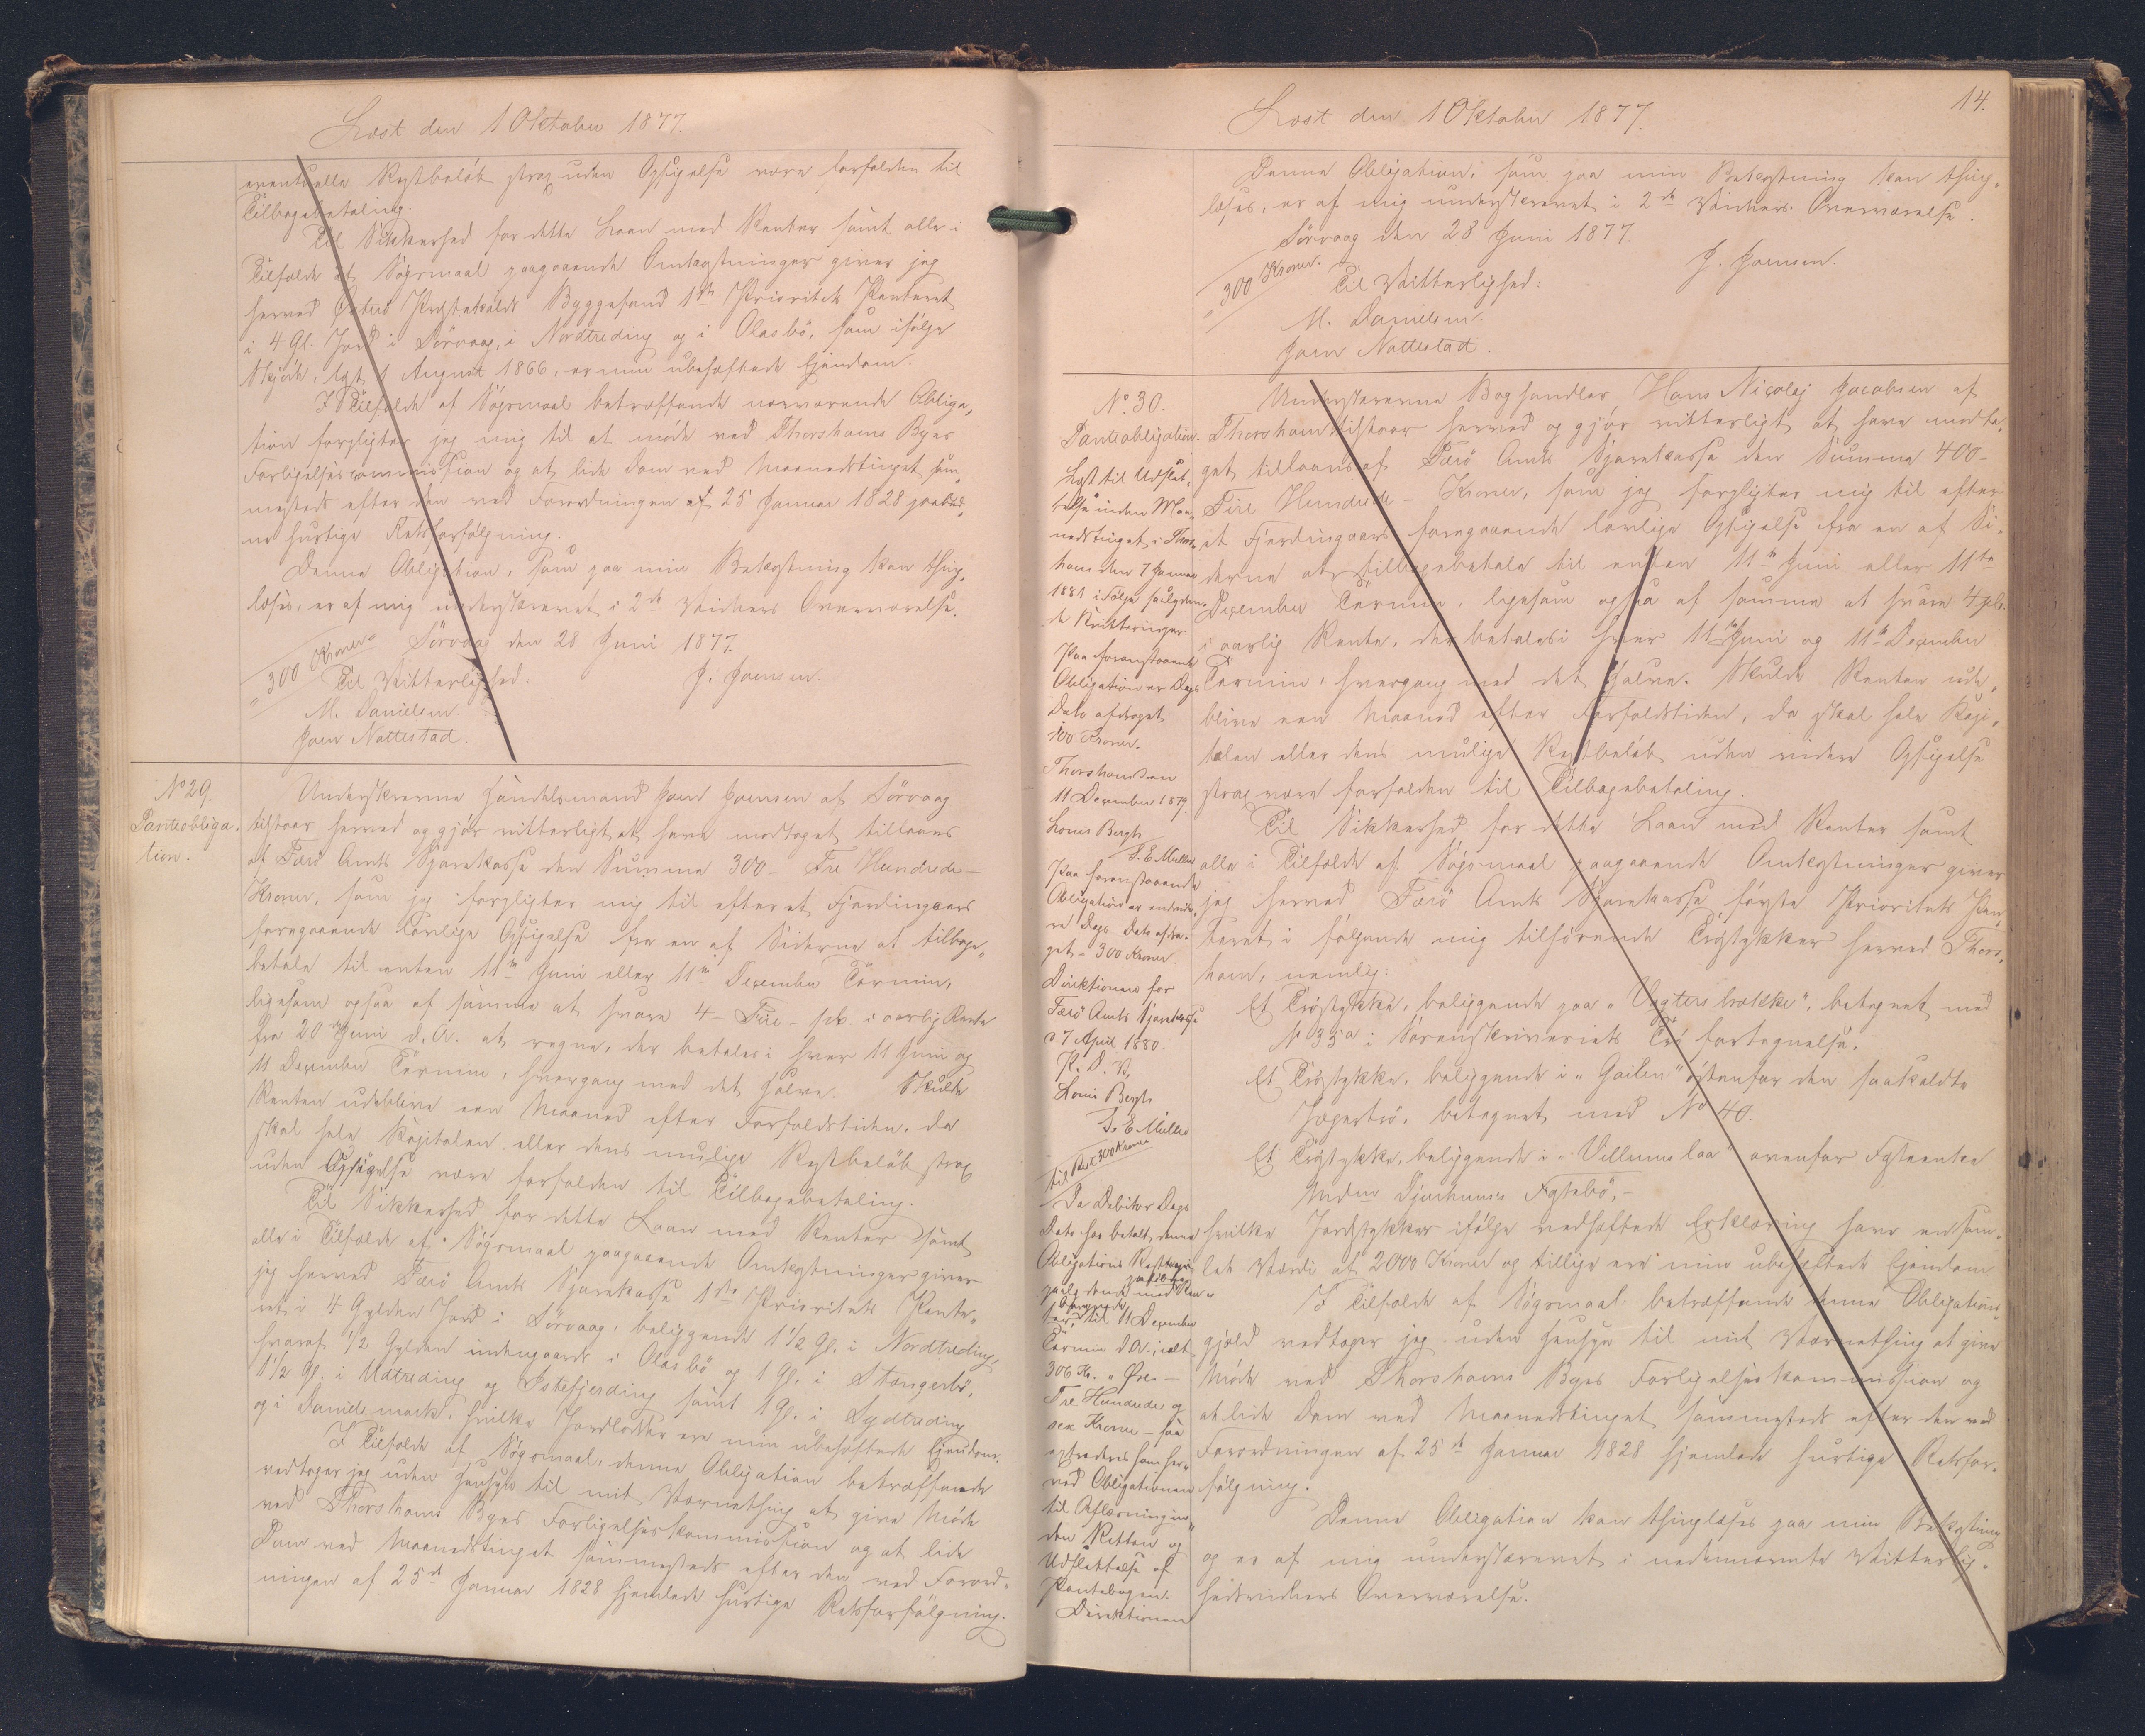 Læst den 1 Oktober 1877.
eventuelle Restbeløb strax uden Opsigelse være forfalden til
Tilbagebetaling.
Til Sikkerhed for dette Laan med Renter samt alle i
Tilfælde af Søgsmaal paagaaende Omkostninger giver jeg
herved Præstekalds Byggefond 1ste Prioritets Panteret
i 4 Gl. Jord i Sörvaag, i Nordtreding og i Olasbö, som ifølge
Skjøde, lyst 1 August 1866, er min ubehæftede Ejendom.
I Tilfælde af Søgsmaal betræffende nærværende Obliga„
tion forpligter jeg mig til at møde ved Thorshavns Byes
Forligelsescommission og at lide Dom ved Maanedstinget sam„
mesteds efter den ved Forordningen af 25 Januar 1828 paabud„
ne hurtige Retsforfølgning.
Denne Obligation, som paa min Bekostning kan thing„
læses, er af mig underskrevet i 2de Vidners Overværelse.
Sörvaag den 28 Juni 1877.
„300 Kroner„
Til Vitterlighed.
J. Joensen.
M. Danielsen.
Joen Nattestad.
No 29.
Panteobliga„
tion.
Underskrevne Handelsmand Joen Joensen af Sörvaag
tilstaar herved og gjør vitterligt at have modtaget tillaans
af Færö Amts Sparekasse den Summa 300 - Tre Hundrede -
Kroner, som jeg forpligter mig til efter et Fjerdingaars
foregaaende lovlige Opsigelse fra en af Siderne at tilbage„
betale til enten 11te Juni eller 11te December Termin,
ligesom ogsaa af samme at svare 4 - Fire - pCt. i aarlig Rente
fra 20 Juni d. A. at regne, der betales i hver 11 Juni og
11 December Termin, hvergang med det halve. Skulde
Renten udeblive een Maaned efter Forfaldstiden, da
skal hele Kapitalen eller dens mulige Restbeløb strax
uden Opsigelse være forfalden til Tilbagebetaling.
Til Sikkerhed for dette Laan med Renter samt
alle i Tilfælde af Søgsmaal paagaaende Omkostninger giver
jeg herved Færö Amts Sparekasse 1ste Prioritets Pante„
ret i 4 Gylden Jord i Sörvaag, beliggende 1 1/2 Gl. i Nordtreding,
hvoraf 1/2 Gylden indengaards i Olasbö og 1 Gl. i Stangerbö,
1 1/2 Gl. i Udtreding og Istefjerding samt 1 Gl. i Sydtreding
og i Danielsmark, hvilke Jordlodder ere min ubehæftede Ejendom.
I Tilfælde af Søgsmaal, denne Obligation betræffende
vedtager jeg uden Hensyn til mit Værnething at give Møde
ved Thorshavns Byes Forligelseskommission og at lide
Dom ved Maanedstinget sammesteds efter den ved Forord„
ningen af 25de Januar 1828 hjemlede hurtige Retsforfølgning.
Læst den 1 Oktober 1877.
14.
Denne Obligation, som paa min Bekostning kan thing„
læses, er af mig underskrevet i 2de Vidners Overværelse.
Sörvaag den 28 Juni 1877.
„300 Kroner.
J. Joensen.
Til Vitterlighed:
M. Danielsen.
Joen Nattestad.
No. 30.
Panteobligation.
Lyst til Udslet„
telse inden Maa„
nedstinget i Thors„
havn den 7 Januar
1881 ifølge paaført
de Kvitteringer
Paa foranstaaende
Obligation er Dags
Dato afdraget
100 Kroner.
Thorshavn den
11 December 1879.
Louis Bergh
S. E. Müller
Paa foranstaaende
Obligation er endvide„
re Dags Dato afdra„
get - 300 Kroner.
Direktionen for
Færö Amts Sparekasse
d 7 April 1880.
P. D. V.
Louis Bergh
S. E. Müller
til Rest 300 Kroner
Da Debitor Dags
Dato har betalt denne
Obligations
ter til 11 December
Termin d. A. ialt
306 Kr. „ Øre -
Tre Hundrede og
sex Kroner - saa
ved Obligationen
til Aflæsning in„
den Retten og
Udslettelse af
Pantebogen.
Direktionen
Underskrevne Boghandler Hans Nicolaj Jacobsen af
Thorshavn tilstaar herved og gjør vitterligt at have modta„
get tillaans af Færö Amts Sparekasse den Summa 400 -
Fire Hundrede - Kroner, som jeg forpligter mig til efter
et Fjerdingaars foregaaende lovlige Opsigelse fra en af Si„
derne at tilbagebetale til enten 11te Juni eller 11te
December Termin, ligesom ogsaa af samme at svare 4 pCt.
i aarlig Rente, der betales i hver 11te Juni og 11te December
Termin, hvergang med det halve. Skulde Renten ude„
blive een Maaned efter Forfaldstiden, da skal hele Kapi„
talen eller dens mulige Restbeløb uden videre Opsigelse
strax være forfalden til Tilbagebetaling.
Til Sikkerhed for dette Laan med Renter samt
alle i Tilfælde af Søgsmaal paagaaende Omkostninger giver
jeg herved Færö Amts Sparekasse første Prioritets Pan„
teret i følgende mig tilhørende Trøstykker herved Thors„
havn, nemlig:
Et Trøstykke, beliggende paa „Vagtersbrække", betegnet med
No 35a i Sorenskriveriets Trø fortegnelse.
Et Trøstykke, beliggende i „Gailen" østenfor den saakaldte
Jægertrö, betegnet med No 40.
Et Trøstykke, beliggende i „Villumslaa" ovenfor Fæsteenke
Mdm Djurhuus Fæstebö, -
hvilke Jordstykker ifølge vedhæftede Erklæring have en sam„
let Værdi af 2000 Kroner og tillige ere min ubehæftede Ejendom
I Tilfælde af Søgsmaal betræffende denne Obligations
gjæld vedtager jeg uden Hensyn til mit Værnething at give
Møde ved Thorshavns Byes Forligelseskommission og
at lide Dom ved Maanedstinget sammesteds efter den ved
Forordningen af 25de Januar 1828 hjemlede hurtige Retsfor„
følgning.
Denne Obligation kan thinglæses paa min Bekostning
og er af mig underskrevet i nedennævnte Vitterlig„
hedsvidners Overværelse.